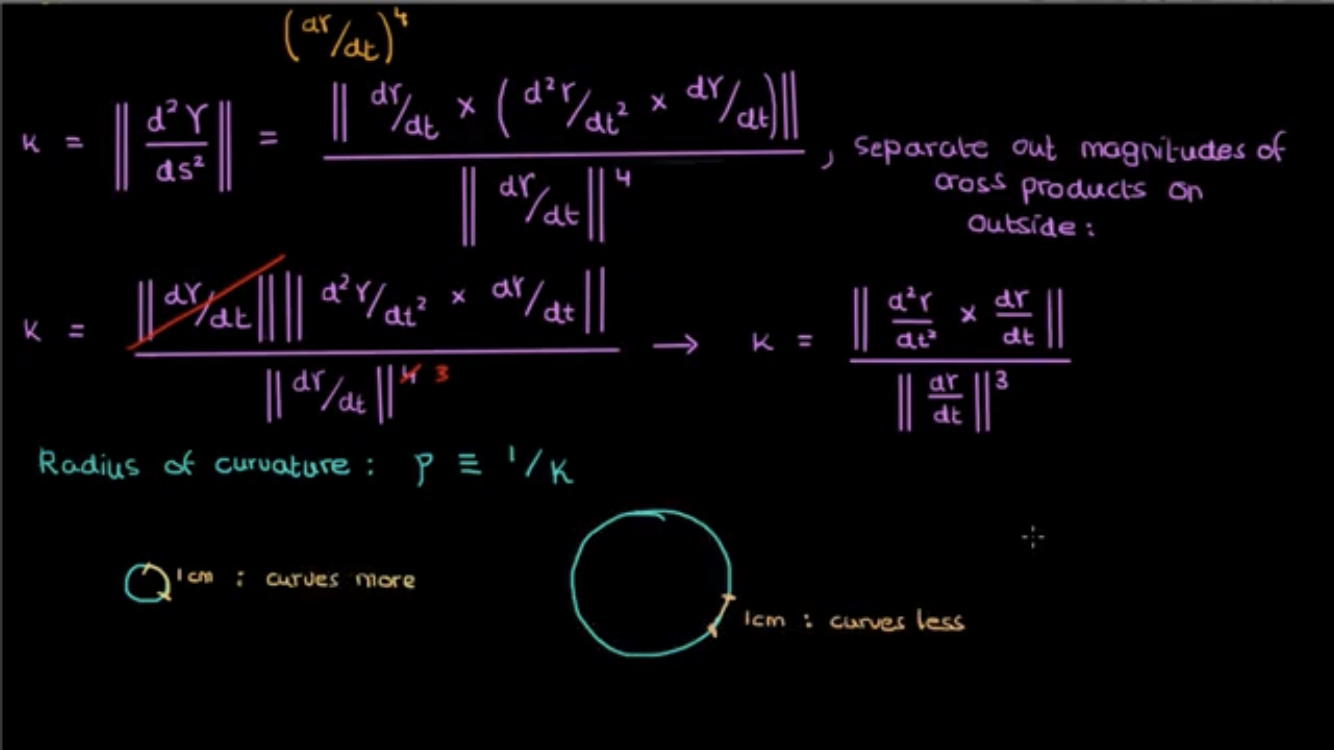 (dr/dt)^4
κ = ‖d²r/ds²‖ = ‖dr/dt × (d²r/dt² × dr/dt)‖ / ‖dr/dt‖^4 , separate out magnitudes of
cross products on
outside:
κ = ‖dr/dt‖ ‖d²r/dt² × dr/dt‖ / ‖dr/dt‖^4 3 → κ = ‖d²r/dt² × dr/dt‖ / ‖dr/dt‖^3
Radius of curvature: ρ ≡ 1/κ
1cm : curves more
1cm : curves less